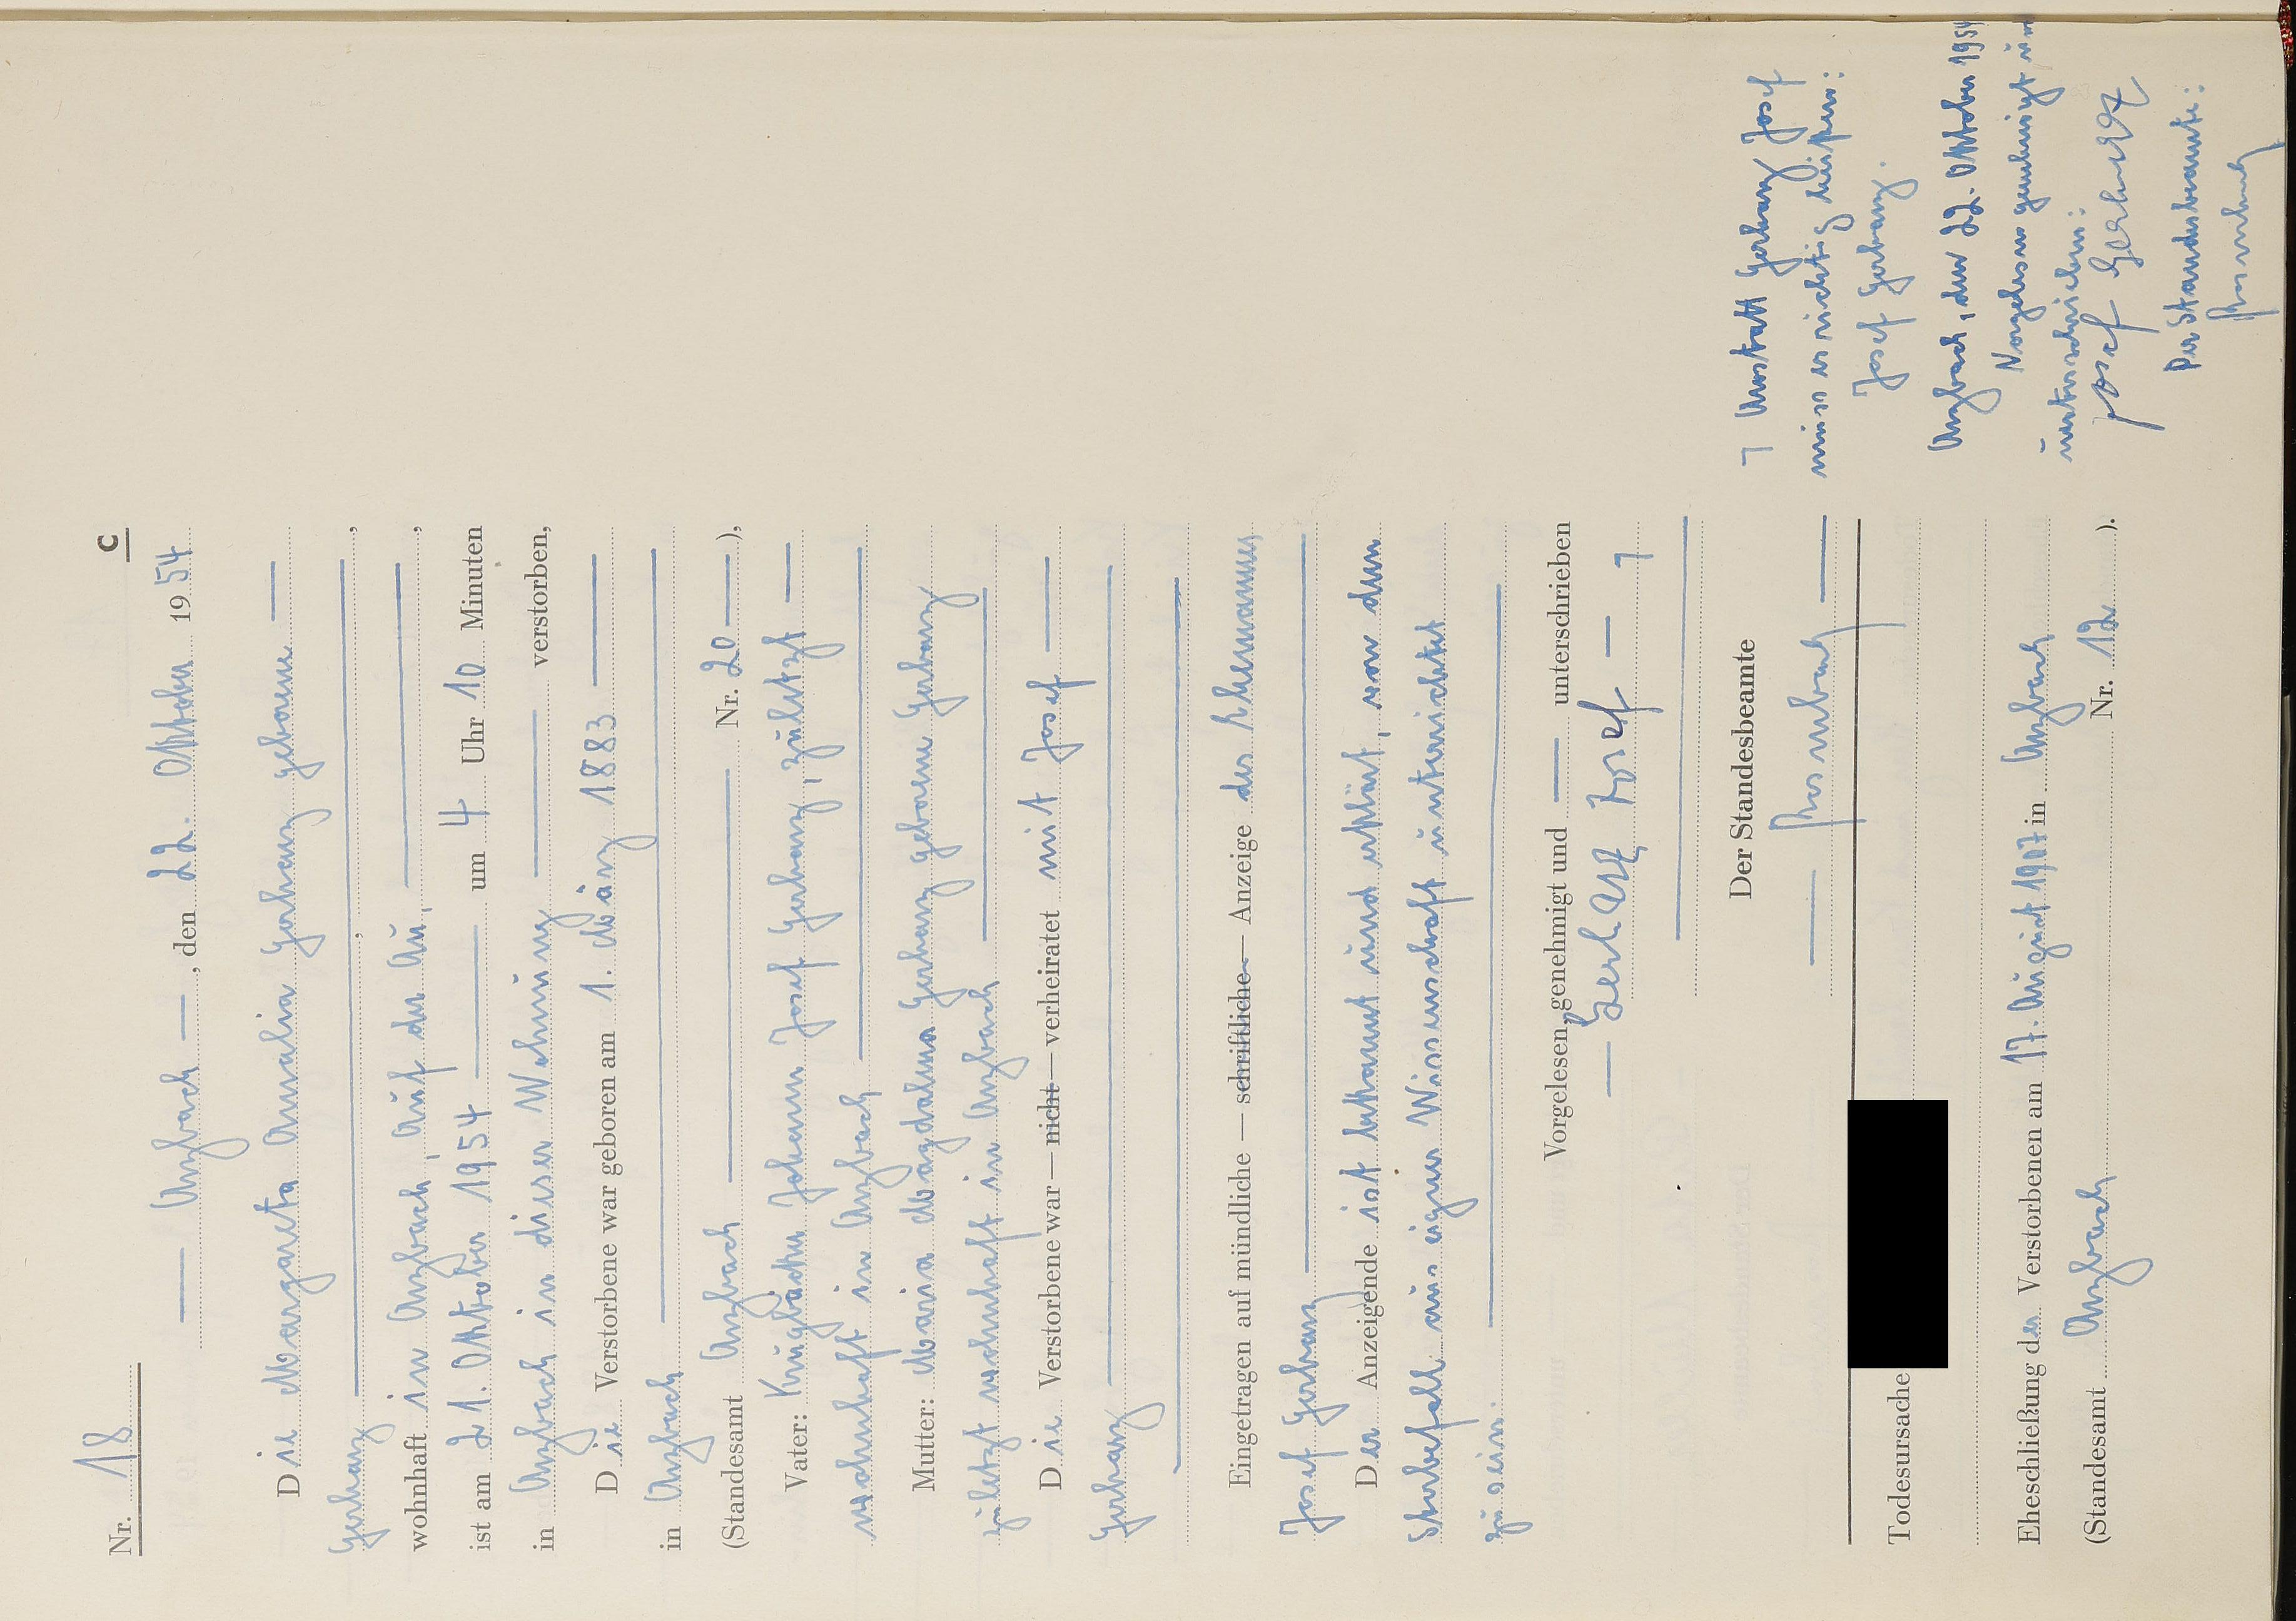 C
Nr. 18
— Arzbach —, den 22. Oktober 1954
Die Margareta Amalia Gerharz geborene —
Gerharz ,
wohnhaft in Arzbach, Auf der Au, — ,
ist am 21. Oktober 1954 — um 4 Uhr 10 Minuten
in Arzbach in dieser Wohnung — verstorben,
Die Verstorbene war geboren am 1. März 1883 —
in Arzbach
(Standesamt Arzbach — Nr. 20 —),
Vater: Krugbäcker Johann Josef Gerharz, zuletzt —
wohnhaft in Arzbach
Mutter: Maria Magdalena Gerharz geborene Gerharz
zuletzt wohnhaft in Arzbach
Die Verstorbene war — nicht — verheiratet mit Josef —
Gerharz
Eingetragen auf mündliche — schriftliche — Anzeige des Ehemannes
Josef Gerharz
Der Anzeigende ist bekannt und erklärt, von dem
Sterbefall aus eigener Wissenschaft unterrichtet
zu sein.
Vorgelesen, genehmigt und — unterschrieben
— Gerharz Josef — ⌉
Der Standesbeamte
⌉ Anstatt Gerharz Josef
muss es richtig heißen:
Josef Gerharz.
Arzbach, den 22. Oktober 1954
Vorgelesen genehmigt und
unterschrieben:
Josef Gerharz
Der Standesbeamte:
Todesursache
Eheschließung der Verstorbenen am 17. August 1907 in Arzbach
(Standesamt Arzbach Nr. 12 ).